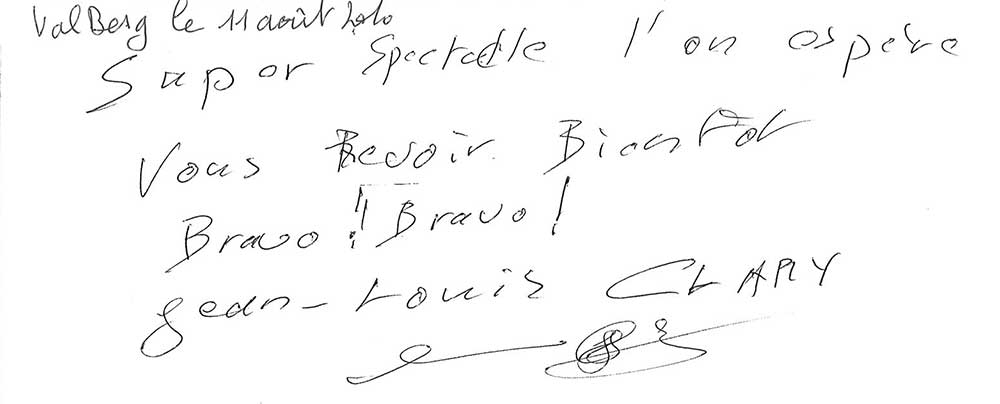 ValBerg le 11 août 2010
Super Spectacle l'on espère
Vous Revoir Bientôt
Bravo! Bravo!
Jean-Louis CLARY